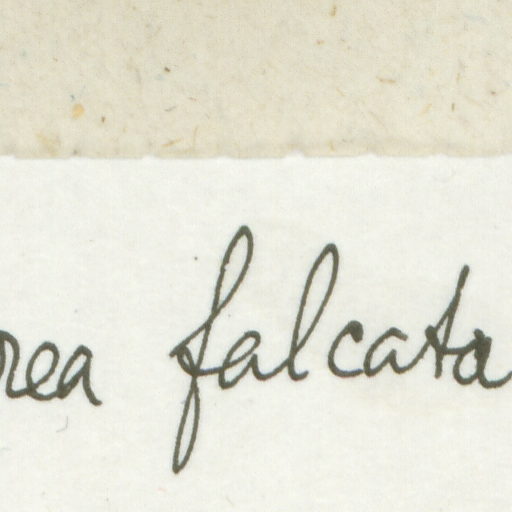 rea falcata